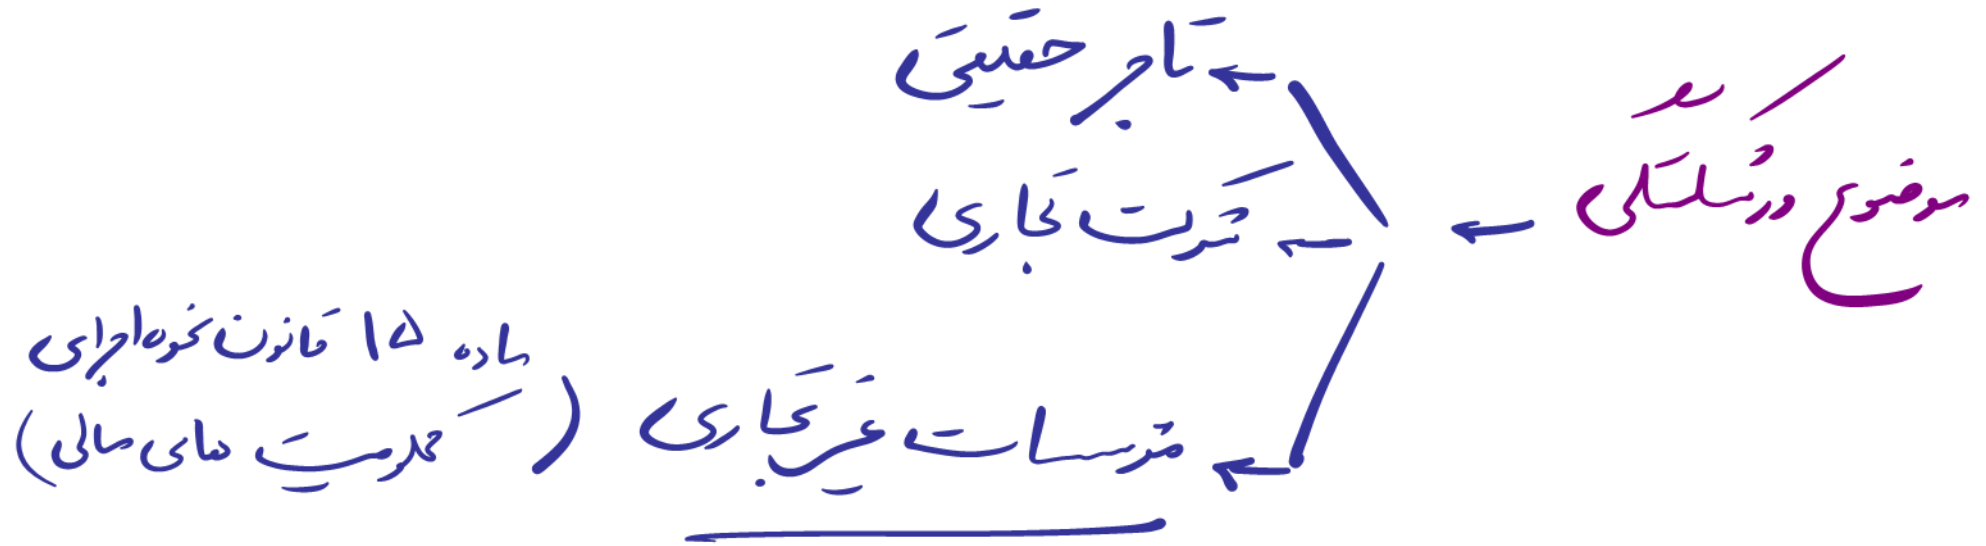 موضوع ورشکستگی
تاجر حقیقی
شرکت تجاری
مؤسسات غیر تجاری (ماده ۱۵ قانون نحوه اجرای
محکومیت های مالی)